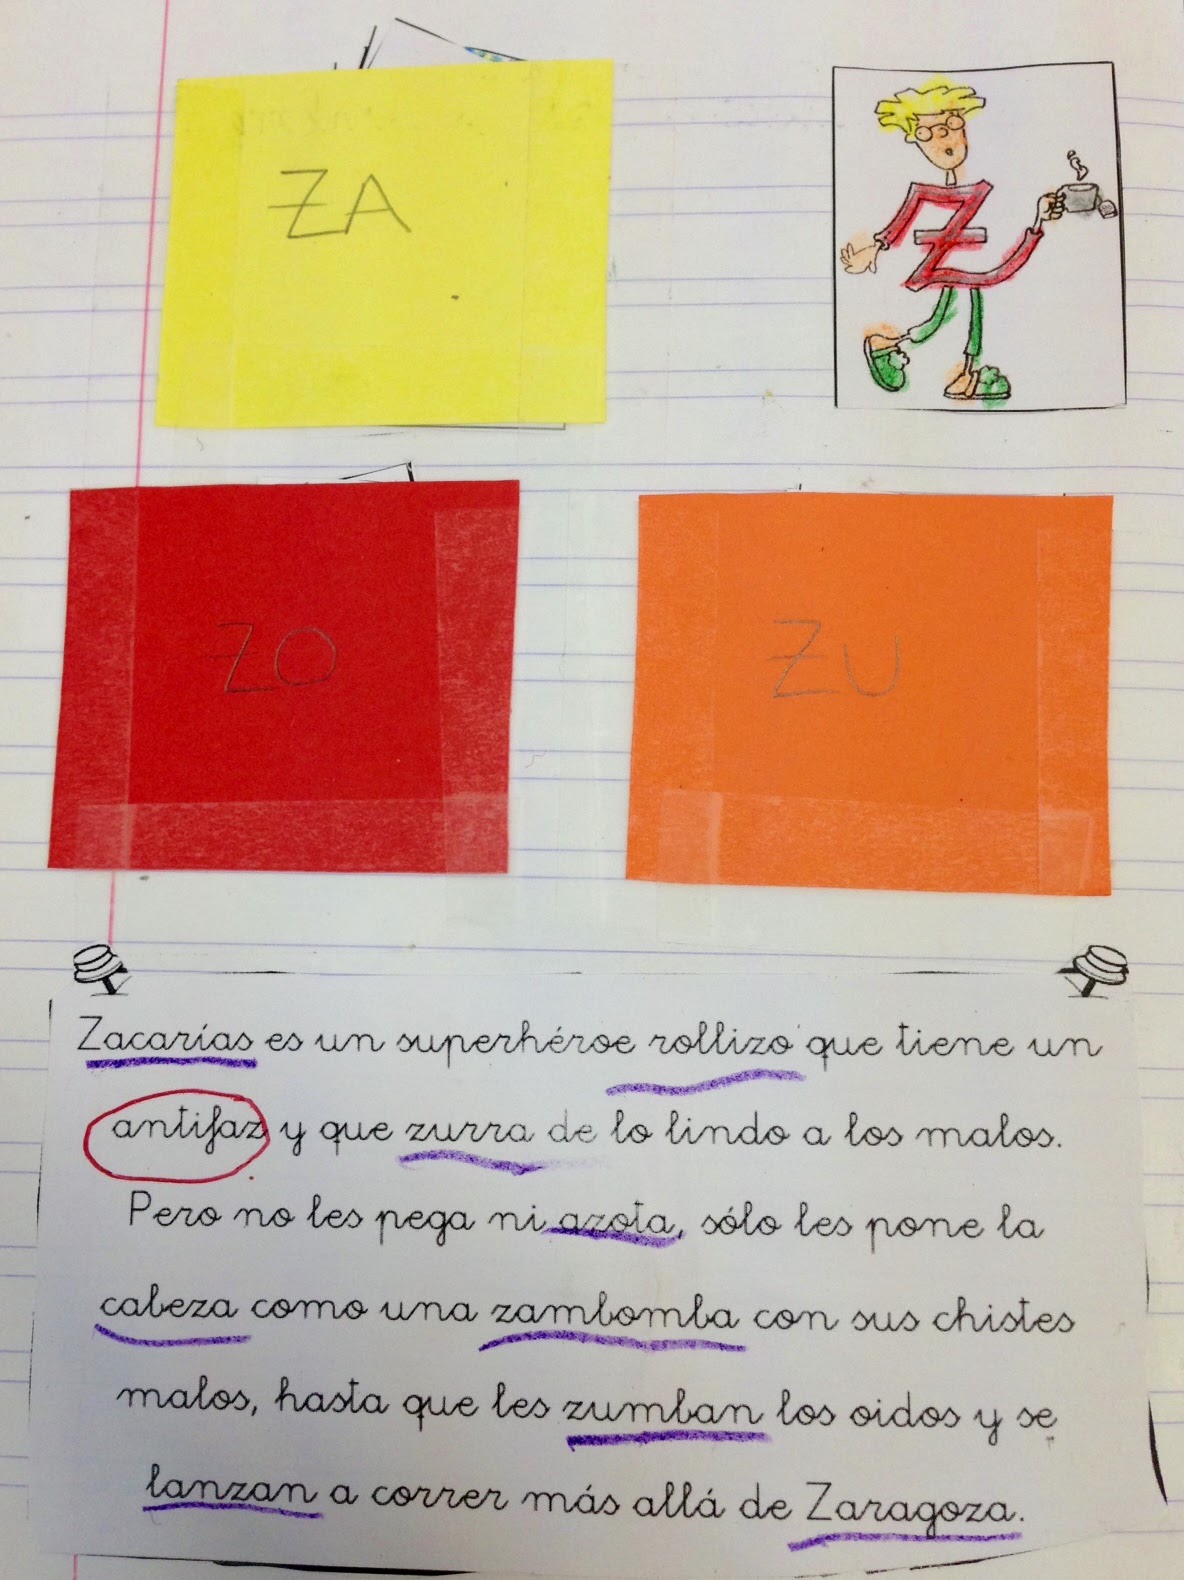 ZA
ZO
ZU
Zacarías es un superhéroe rollizo que tiene un
antifaz y que zurra de lo lindo a los malos.
Pero no les pega ni azota, sólo les pone la
cabeza como una zambomba con sus chistes
malos, hasta que les zumban los oidos y se
lanzan a correr más allá de Zaragoza.